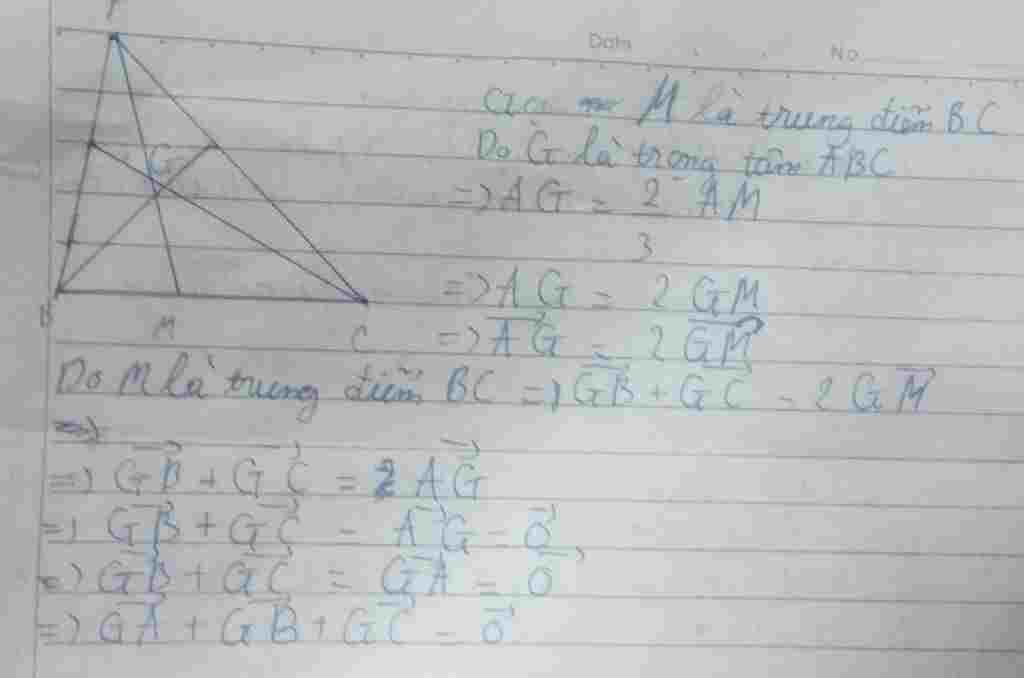 Data No
G
B M C
Gọi M là trung điểm BC
Do G là trọng tâm ABC
=> AG = 2/3 AM
=> AG = 2 GM
=> \overrightarrow{AG} = 2 \overrightarrow{GM}
Do M là trung điểm BC => \overrightarrow{GB} + \overrightarrow{GC} = 2 \overrightarrow{GM}
=>
=> \overrightarrow{GB} + \overrightarrow{GC} = 2 \overrightarrow{AG}
=> \overrightarrow{GB} + \overrightarrow{GC} - \overrightarrow{AG} = \overrightarrow{0}
=> \overrightarrow{GB} + \overrightarrow{GC} = \overrightarrow{GA} = \overrightarrow{0}
=> \overrightarrow{GA} + \overrightarrow{GB} + \overrightarrow{GC} = \overrightarrow{0}